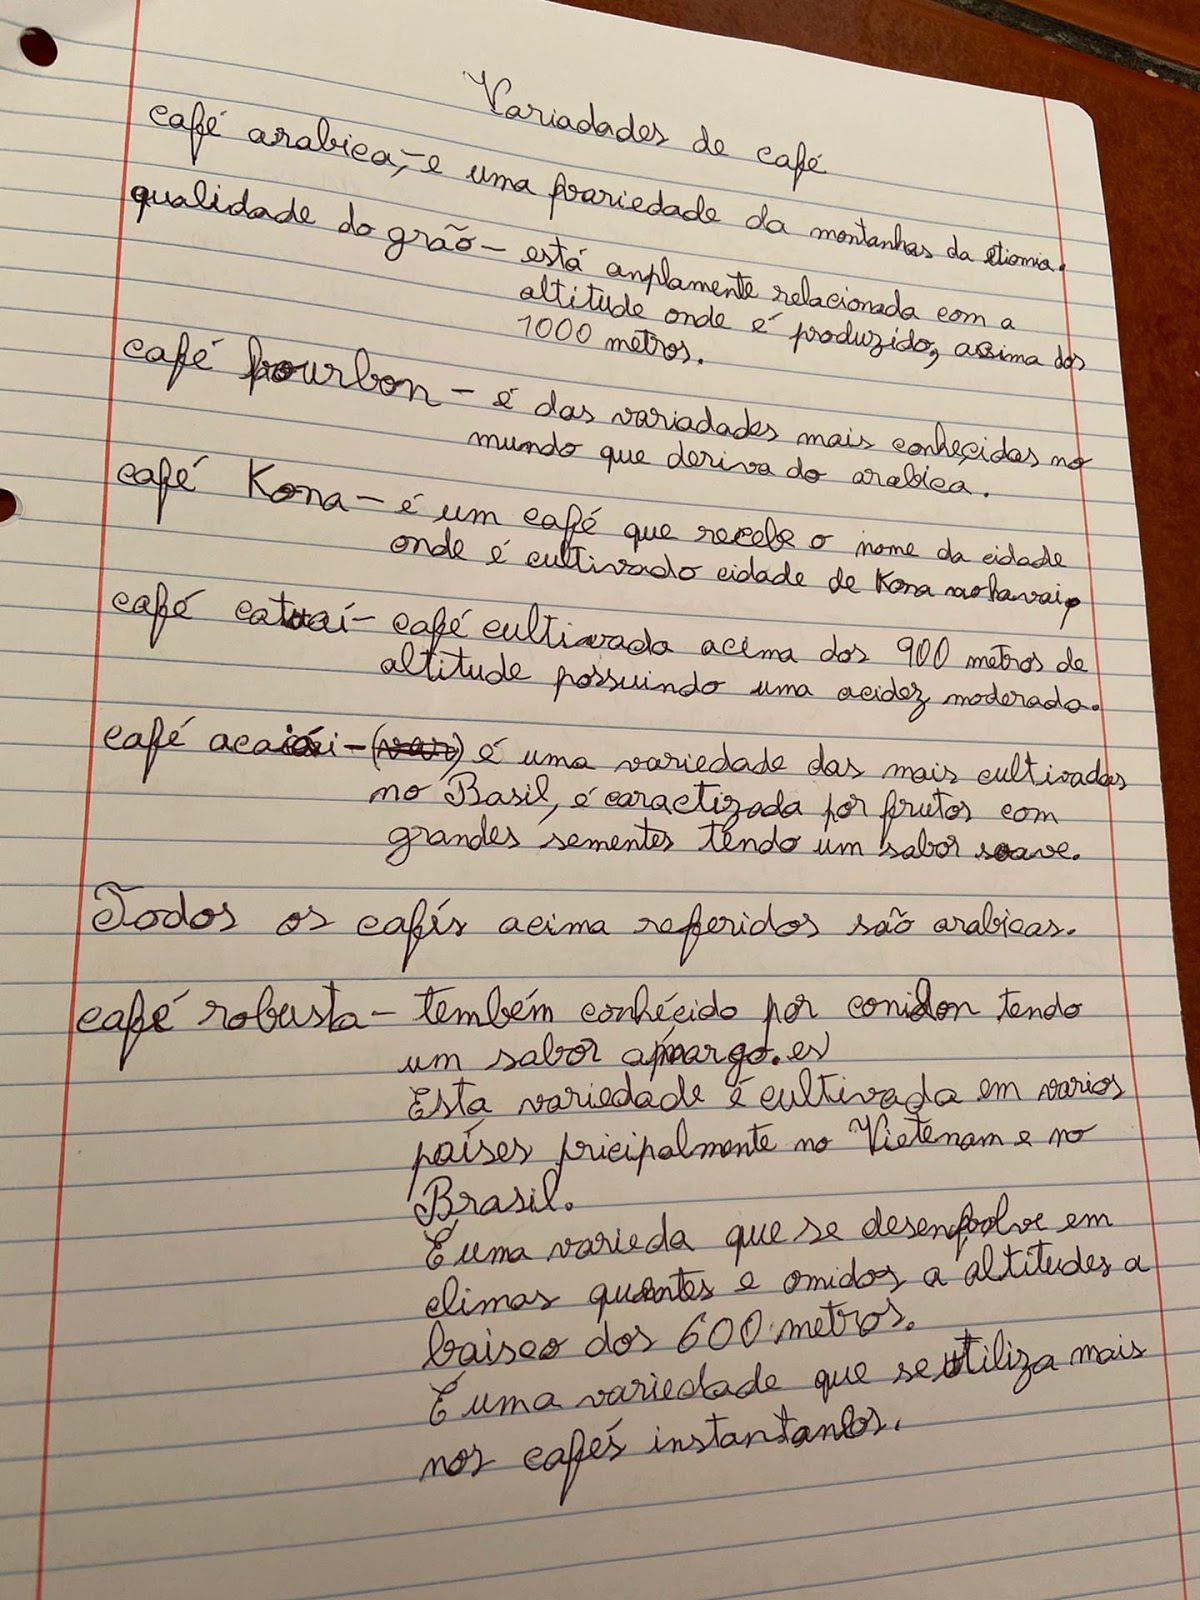 Variadades de café
café arabica, - e uma variedade da montanhas da etiomia.
qualidade do grão - está anplamente relacionada com a
altitude onde é produzido, acima dos
1000 metros.
café bourbon - é das variadades mais conheçidas no
mundo que deriva do arabica.
café Kona - é um café que recebe o nome da cidade
onde é cultivado cidade de Kona no havai,
café catuaí - café cultivado acima dos 900 metros de
altitude possuindo uma acidez moderada.
café acaiái - (var) é uma variedade das mais cultivadas
no Basil, é caractizada por frutos com
grandes sementes tendo um sabor soave.
Todos os cafés acima referidos são arabicas.
café robusta - tembém conhécido por conilon tendo
um sabor amargo. es
Esta variedade é cultivada em varios
países pricipalmente no Vietenam e no
Brasil.
É uma varieda que se desenvolve em
climas quentes e omidos a altitudes a
baixo dos 600 metros.
É uma variedade que se utiliza mais
nos cafés instantaneos.